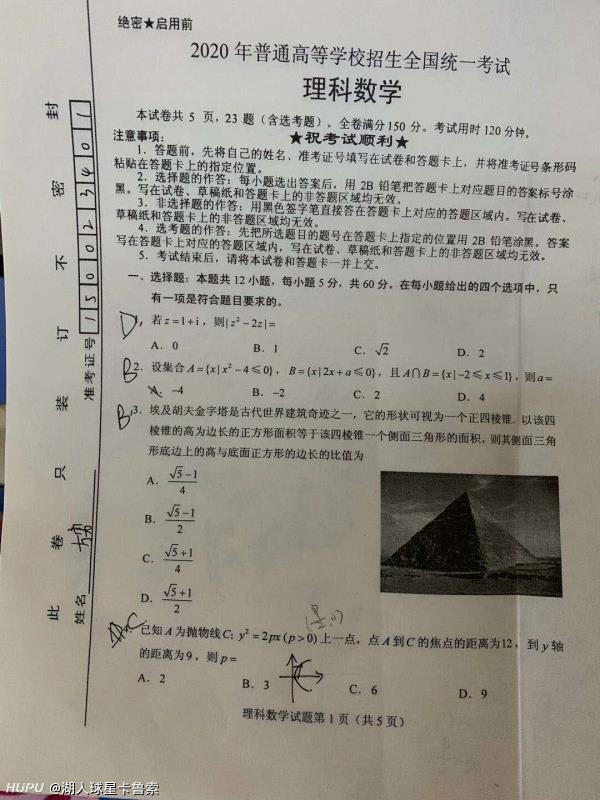 绝密★启用前
2020 年普通高等学校招生全国统一考试
理科数学
本试卷共 5 页，23 题（含选考题）。全卷满分 150 分。考试用时 120 分钟。
★祝考试顺利★
注意事项：
1．答题前，先将自己的姓名、准考证号填写在试卷和答题卡上，并将准考证号条形码
粘贴在答题卡上的指定位置。
2．选择题的作答：每小题选出答案后，用 2B 铅笔把答题卡上对应题目的答案标号涂
黑。写在试卷、草稿纸和答题卡上的非答题区域均无效。
3．非选择题的作答：用黑色签字笔直接答在答题卡上对应的答题区域内。写在试卷、
草稿纸和答题卡上的非答题区域均无效。
4．选考题的作答：先把所选题目的题号在答题卡上指定的位置用 2B 铅笔涂黑。答案
写在答题卡上对应的答题区域内，写在试卷、草稿纸和答题卡上的非答题区域均无效。
5．考试结束后，请将本试卷和答题卡一并上交。
一、选择题：本题共 12 小题，每小题 5 分，共 60 分。在每小题给出的四个选项中，只
有一项是符合题目要求的。
D 1．若 z=1+i，则|z²−2z|=
A．0 B．1 C．√2 D．2
B 2．设集合 A={x|x²−4⩽0}，B={x|2x+a⩽0}，且 A∩B={x|−2⩽x⩽1}，则 a=
A．−4 B．−2 C．2 D．4
B 3．埃及胡夫金字塔是古代世界建筑奇迹之一，它的形状可视为一个正四棱锥．以该四
棱锥的高为边长的正方形面积等于该四棱锥一个侧面三角形的面积，则其侧面三角
形底边上的高与底面正方形的边长的比值为
A．(√5−1)/4
B．(√5−1)/2
C．(√5+1)/4
D．(√5+1)/2
C 已知 A 为抛物线 C：y²=2px(p>0)上一点，点 A 到 C 的焦点的距离为12，到 y 轴
的距离为9，则 p=
A．2 B．3 C．6 D．9
理科数学试题第 1 页（共 5 页）
此卷只装订不密封
姓名
准考证号 150023401
HUPU @湖人球星卡鲁索